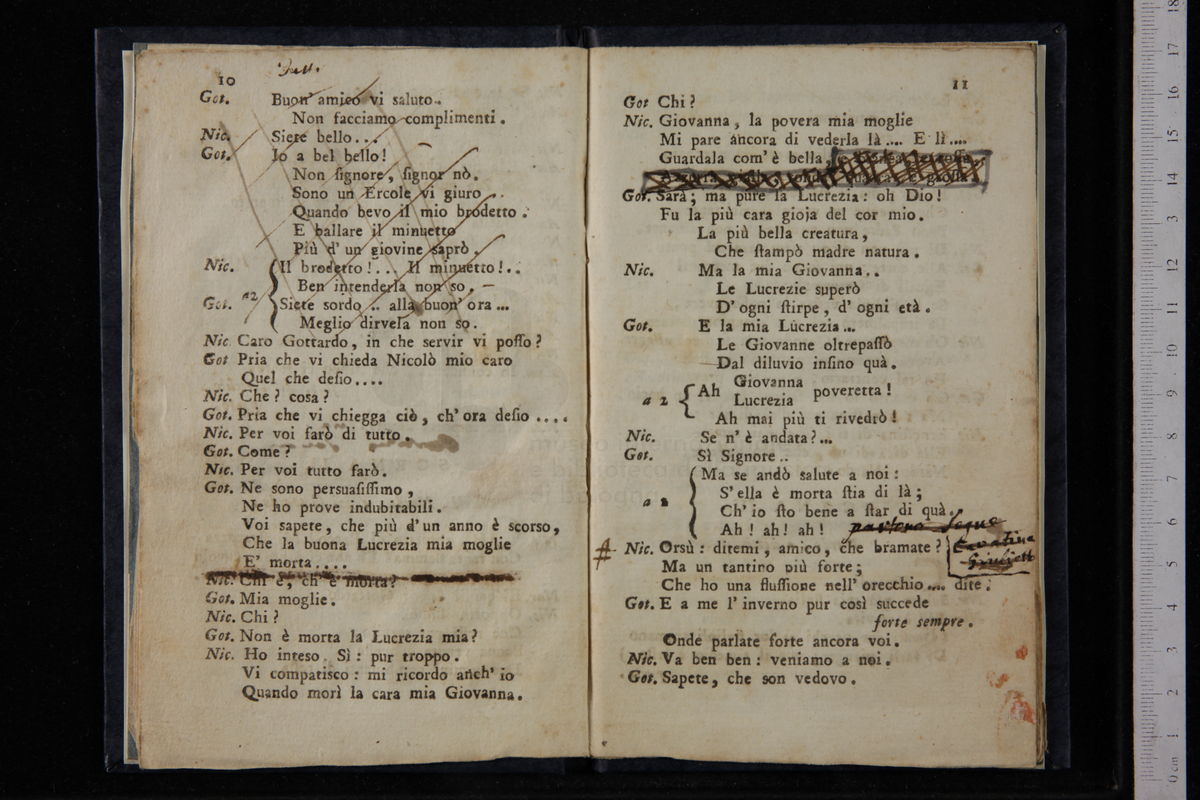 10
Got. Buon' amico vi saluto..
Non facciamo complimenti.
Nic. Siete bello...
Got. Io a bel bello!
Non signore, signor nò.
Sono un Ercole vi giuro..
Quando bevo il mio brodetto.
E ballare il minuetto
Più d' un giovine saprò.
Nic. Il brodetto!... Il minuetto!..
Ben intenderla non so.
a 2
Got. Siete sordo .. alla buon' ora...
Meglio dirvela non so.
Nic. Caro Gottardo, in che servir vi posso?
Got Pria che vi chieda Nicolò mio caro
Quel che desio....
Nic. Che? cosa?
Got. Pria che vi chiegga ciò, ch' ora desio ....
Nic. Per voi farò di tutto.
Got. Come?
Nic. Per voi tutto farò.
Got. Ne sono persuasissimo,
Ne ho prove indubitabili.
Voi sapete, che più d'un anno è scorso,
Che la buona Lucrezia mia moglie
E' morta....
Nic. Chi è, ch' è morta?
Got. Mia moglie.
Nic. Chi?
Got. Non è morta la Lucrezia mia?
Nic. Ho inteso. Sì: pur troppo.
Vi compatisco: mi ricordo anch' io
Quando morì la cara mia Giovanna.
11
Got Chi?
Nic. Giovanna, la povera mia moglie
Mi pare ancora di vederla là.... E lì....
Guardala com' è bella,
Got. Sarà; ma pure la Lucrezia: oh Dio!
Fu la più cara gioja del cor mio.
La più bella creatura,
Che stampò madre natura.
Nic. Ma la mia Giovanna..
Le Lucrezie superò
D' ogni stirpe, d' ogni età.
Got. E la mia Lucrezia...
Le Giovanne oltrepassò
Dal diluvio insino quà.
a 2 Ah Giovanna
Lucrezia poveretta!
Ah mai più ti rivedrò!
Nic. Se n' è andata?...
Got. Sì Signore..
Ma se andò salute a noi:
S' ella è morta stia di là;
a 2 Ch' io sto bene a star di quà.
Ah! ah! ah!
Nic. Orsù: ditemi, amico, che bramate?
Cavatina
Ma un tantino più forte;
Che ho una flussione nell' orecchio.... dite.
Got. E a me l' inverno pur così succede
forte sempre.
Onde parlate forte ancora voi.
Nic. Va ben ben: veniamo a noi.
Got. Sapete, che son vedovo.